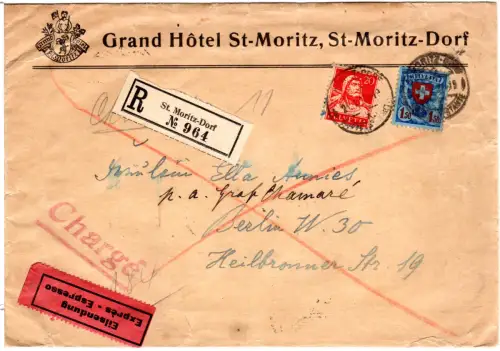 Grand Hôtel St-Moritz, St-Moritz-Dorf
R
St. Moritz-Dorf
№ 964
20
HELVETIA
HELVETIA
1.50 1.50
Fräulein Ella
p. a. Graf Chamaré
Berlin W. 30
Heilbronner Str. 19
Chargé
Eilsendung
Exprès - Espresso